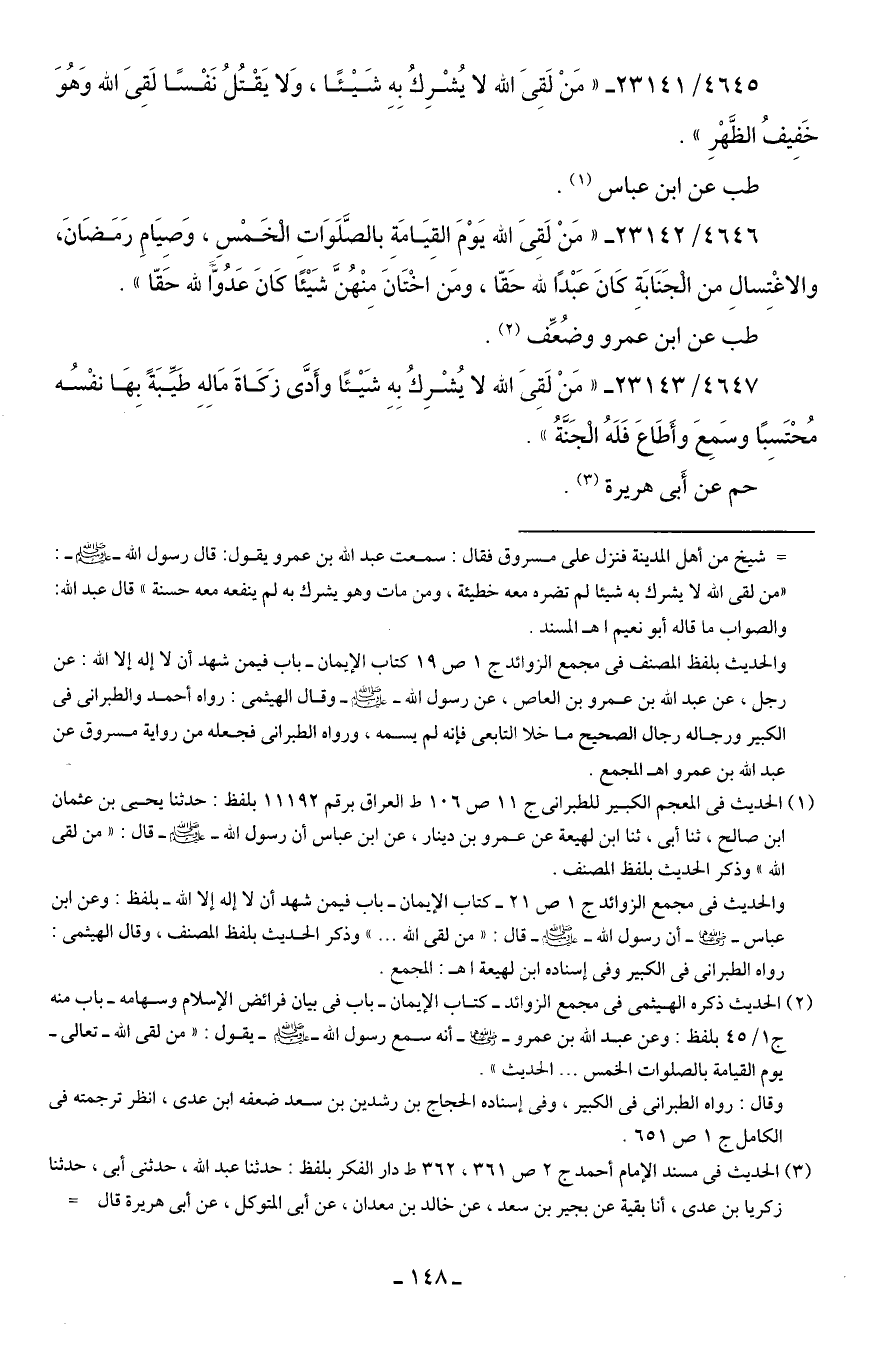 ٤٦٤٥/ ٢٣١٤١ـ « مَنْ لَقِىَ الله لا يُشْرِكُ بِهِ شَيْئًا ، وَلا يَقْتُلُ نَفْسًا لَقِىَ الله وَهُوَ
خَفِيفُ الظَّهْرِ » .
طب عن ابن عباس (١) .
٤٦٤٦/ ٢٣١٤٢ـ « مَنْ لَقِىَ الله يَوْمَ القِيَامَةِ بالصَّلَوَاتِ الْخَمْسِ ، وَصِيَامِ رَمَضَانَ،
والاغْتِسالِ من الْجَنَابَةِ كَانَ عَبْدًا لله حَقّا ، ومَن اخْتَانَ مِنْهُنَّ شَيْئًا كَانَ عَدُوّا لله حَقّا » .
طب عن ابن عمرو وضُعِّف (٢) .
٤٦٤٧/ ٢٣١٤٣ـ « مَنْ لَقِىَ الله لا يُشْرِكُ بِهِ شَيْئًا وأَدَّى زَكَاةَ مَالِهِ طَيِّبَةً بِهَا نفْسُه
مُحْتَسِبًا وسَمِعَ وأَطَاعَ فَلَهُ الْجَنَّةُ » .
حم عن أَبى هريرة (٣) .
= شيخ من أهل المدينة فنزل على مسروق فقال : سمعت عبد الله بن عمرو يقول: قال رسول الله ـ ﷺ ـ :
«من لقى الله لا يشرك به شيئا لم تضره معه خطيئة ، ومن مات وهو يشرك به لم ينفعه معه حسنة » قال عبد الله:
والصواب ما قاله أبو نعيم ا هـ المسند .
والحديث بلفظ المصنف فى مجمع الزوائد ج ١ ص ١٩ كتاب الإيمان ـ باب فيمن شهد أن لا إله إلا الله : عن
رجل ، عن عبد الله بن عمرو بن العاص ، عن رسول الله ـ ﷺ ـ وقال الهيثمى : رواه أحمد والطبرانى فى
الكبير ورجاله رجال الصحيح ما خلا التابعى فإنه لم يسمه ، ورواه الطبرانى فجعله من رواية مسروق عن
عبد الله بن عمرو اهـ المجمع .
(١) الحديث فى المعجم الكبير للطبرانى ج ١١ ص ١٠٦ ط العراق برقم ١١١٩٢ بلفظ : حدثنا يحيى بن عثمان
ابن صالح ، ثنا أبى ، ثنا ابن لهيعة عن عمرو بن دينار ، عن ابن عباس أن رسول الله ـ ﷺ ـ قال : « من لقى
الله » وذكر الحديث بلفظ المصنف .
والحديث فى مجمع الزوائد ج ١ ص ٢١ ـ كتاب الإيمان ـ باب فيمن شهد أن لا إله إلا الله ـ بلفظ : وعن ابن
عباس ـ رضي الله عنهما ـ أن رسول الله ـ ﷺ ـ قال : « من لقى الله ... » وذكر الحديث بلفظ المصنف ، وقال الهيثمى :
رواه الطبرانى فى الكبير وفى إسناده ابن لهيعة ا هـ : المجمع .
(٢) الحديث ذكره الهيثمى فى مجمع الزوائد ـ كتاب الإيمان ـ باب فى بيان فرائض الإسلام وسهامه ـ باب منه
ج١/ ٤٥ بلفظ : وعن عبد الله بن عمرو ـ رضي الله عنهما ـ أنه سمع رسول الله ـ ﷺ ـ يقول : « من لقى الله ـ تعالى ـ
يوم القيامة بالصلوات الخمس ... الحديث » .
وقال : رواه الطبرانى فى الكبير ، وفى إسناده الحجاج بن رشدين بن سعد ضعفه ابن عدى ، انظر ترجمته فى
الكامل ج ١ ص ٦٥١ .
(٣) الحديث فى مسند الإمام أحمد ج ٢ ص ٣٦١ ، ٣٦٢ ط دار الفكر بلفظ : حدثنا عبد الله ، حدثنى أبى ، حدثنا
زكريا بن عدى ، أنا بقية عن بجير بن سعد ، عن خالد بن معدان ، عن أبى المتوكل ، عن أبى هريرة قال =
ـ ١٤٨ ـ